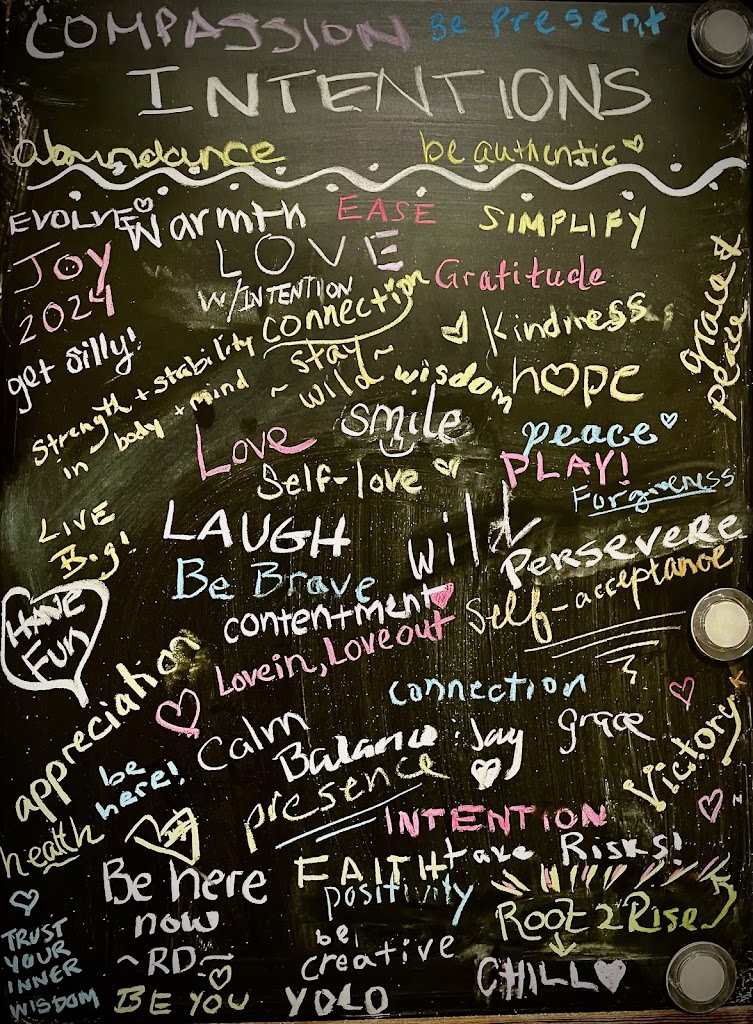 COMPASSION
Be Present
INTENTIONS
abundance
be authentic
EVOLVE
Warmth
EASE
SIMPLIFY
JOY
2024
LOVE
W/INTENTION
Gratitude
connection
Kindness
grace &
peace
get silly!
Strength + stability
in body + mind
~ stay ~
~ wild
wisdom
hope
smile
Love
peace
Self-love
PLAY!
Forgiveness
LIVE
Big!
LAUGH
wild
PERSEVERE
Be Brave
HAVE
FUN
contentment
Self-acceptance
Love in, Love out
appreciation
connection
Calm
Balance
Joy
grace
Victory
be
here!
presence
INTENTION
health
Be here
now
~RD~
FAITH
take Risks!
positivity
ROOT 2 Rise
TRUST
YOUR
INNER
WISDOM
be
creative
CHILL
BE YOU
YOLO